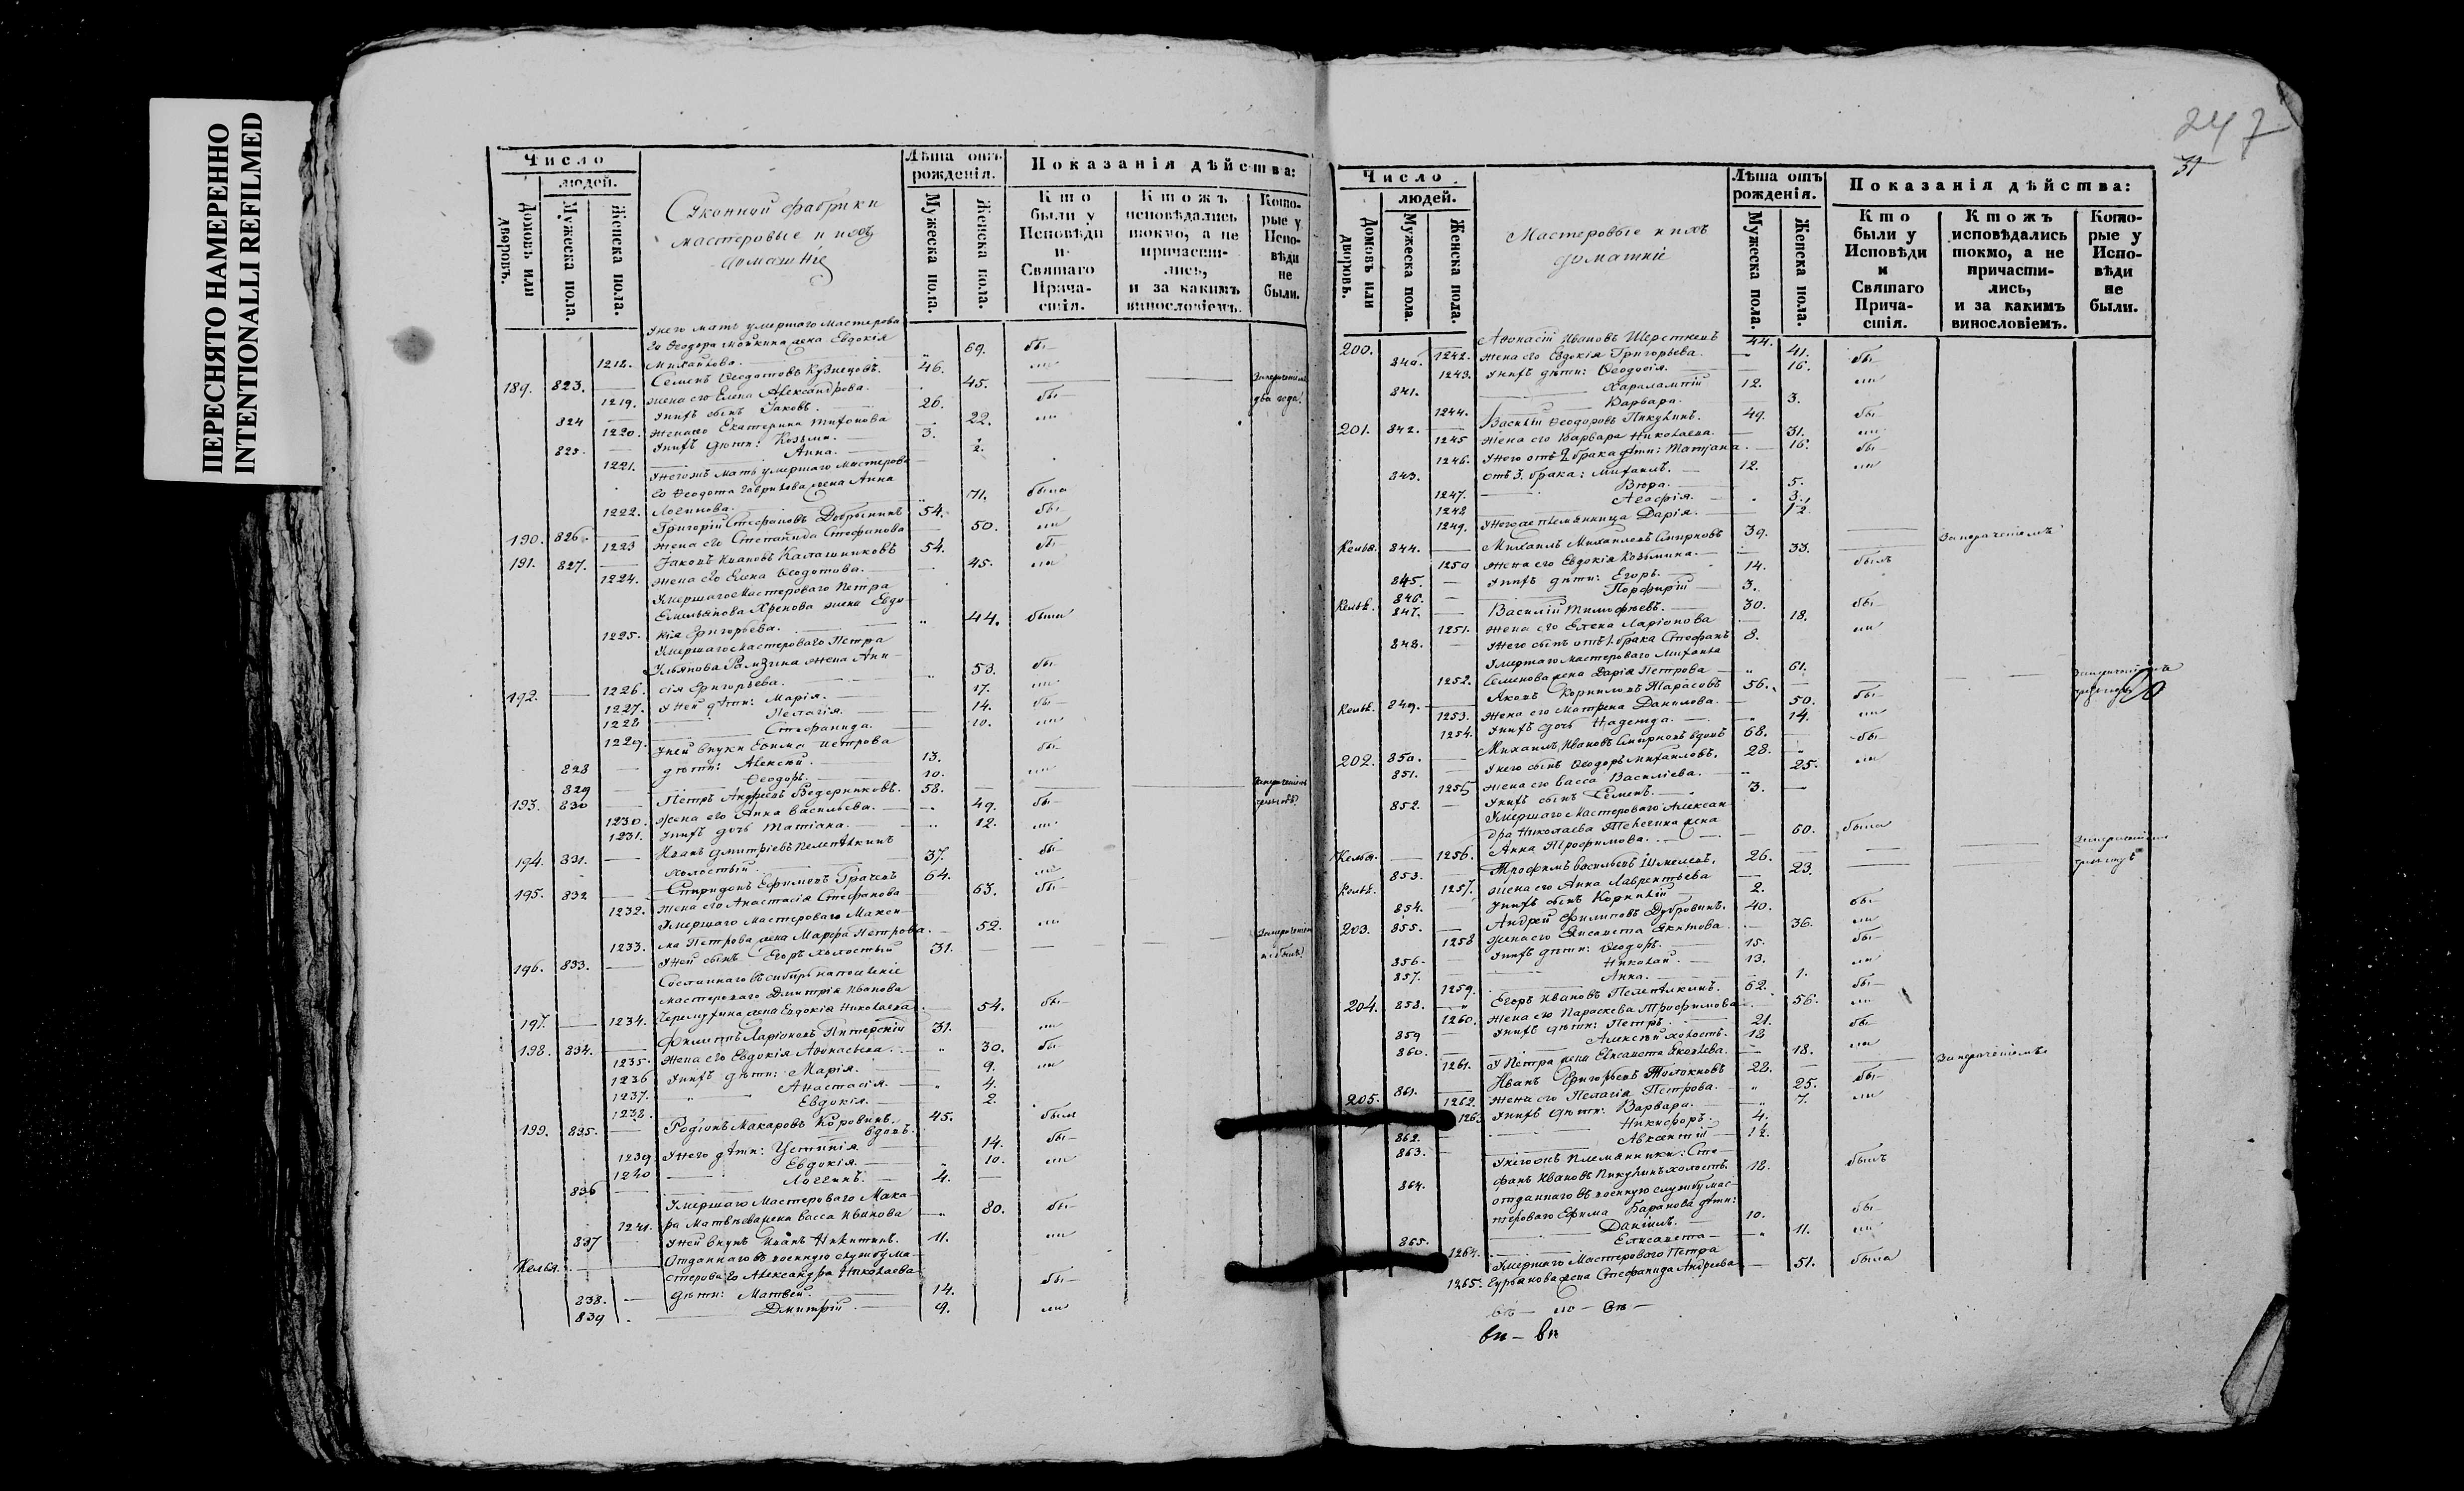 ПЕРЕСНЯТО НАМЕРЕННО
INTENTIONALLI REFILMED
Число
людей.
Домовъ или дворовъ.
Мужеска пола.
Женска пола.
Суконной фабрики
мастеровые и ихъ
домашніе
Лѣта отъ рожденія.
Мужеска пола.
Женска пола.
Показанія дѣйства:
Кто были у Исповѣди и Святаго Причастія.
Ктожъ исповѣдались токмо, а не причастились, и за какимъ винословіемъ.
Которые у Исповѣди не были.
У него мать умершаго мастерова
го Ѳеодора жена Евдокія
1218. Михайлова. 69. бы—
189. 823. Семенъ Ѳеодотовъ Кузнецовъ. 46. ли
1219. жена его Елена Александрова. 45.
824 У нихъ сынъ Іаковъ. 26. бы—
1220. жена его Екатерина Тихонова 22. ли
825. У нихъ дѣти: Козьма. 3.
1221. Анна.
У него жъ мать умершаго мастерова
го Ѳеодота Гаврилова жена Анна
1222. Логинова. 71. была
190. 826 Григорій Стефановъ Добрынинъ 54. бы—
1223 жена его Степанида Стефанова 50. ли
191. 827. Іаковъ Ивановъ Калашниковъ 54. бы—
1224. жена его Елена Ѳеодотова. 45. ли
Умершаго Мастероваго Петра
Емильянова Хренова жена Евдо—
1225. кія Григорьева. 44. была
Умершаго мастероваго Петра
Ульянова жена Ани—
192. 1226. сія Григорьева. 53. бы
1227. У ней дѣти: Марія. 17. ли
1228 Пелагія. 14. бы—
1229. Стефанида. 10. ли
У ней внуки Ефима Петрова
828 дѣти: Алексѣй. 13. бы—
829 Ѳеодоръ. 10. ли
193. 830 Петръ Андреевъ Ведерниковъ. 58.
1230. Жена его Анна Васильева. 49. бы—
1231. У нихъ дочь Татіана. 12. ли
194. 831. Иванъ Дмитріевъ Пелепѣлкинъ
холостый. 37. бы—
195. 832 Спиридонъ Ефимовъ Грачевъ 64. ли
1232. жена его Анастасія Стефанова 63. бы—
Умершаго мастероваго Макси—
1233. ма Петрова жена Марѳа Петрова. 52. ли
196. 833. У ней сынъ Егоръ холостый 31.
Сосланнаго въ сибирь на поселеніе
мастероваго Дмитрія Иванова
197. 1234. жена Евдокія Николаева. 54. бы—
198. 834. Филиппъ Ларіоновъ Питерскій 31. ли
1235. жена его Евдокія Аѳонасьева. 30. бы
1236 У нихъ дѣти: Марія. 9. ли
1237. Анастасія. 4.
1238. Евдокія. 2.
199. 835. Родіонъ Макаровъ Коровинъ, 45. былъ
вдовъ.
1239 У него дѣти: Устинія. 14. бы—
1240 Евдокія. 10. ли
836 Логгинъ. 4.
Умершаго Мастероваго Мака—
1241. ра Матвѣева жена Васса Иванова 80. бы—
837 У ней внукъ Иванъ Никитинъ. 11. ли
Келья. Отданнаго въ военную службу ма—
стероваго Александра Николаева
838. дѣти: Матвей. 14. бы—
839 Дмитрій. 9. ли
247
31
Число
людей.
Домовъ или дворовъ.
Мужеска пола.
Женска пола.
Мастеровые и ихъ
домашніе
Лѣта отъ рожденія.
Мужеска пола.
Женска пола.
Показанія дѣйства:
Кто были у Исповѣди и Святаго Причастія.
Ктожъ исповѣдались токмо, а не причастились, и за какимъ винословіемъ.
Которые у Исповѣди не были.
200. 840. Аѳонасій Ивановъ 44.
1242. жена его Евдокія Григорьева. 41. бы—
1243. У нихъ дѣти: Ѳеодосія. 16.
841. Харалампій 12. ли
1244. Варвара. 3.
201. 842. Василій Ѳеодоровъ Пикулинъ. 49. бы
1245 жена его Варвара Николаева. 31. ли
1246. У него отъ 2 брака дѣти: Татіана. 16. бы
843. отъ 3. брака: Михаилъ. 12. ли
1247. Вѣра. 5.
1248 Агафія. 3.
1249. У него же племянница Дарія. 12.
Келья. 844. Михаилъ Михаиловъ Смирновъ 39. За
1250 жена его Евдокія Козьмина. 33.
845. У нихъ дѣти: Егоръ. 14. былъ
846. Порфирій 3.
Келья. 847. Василій Тимофѣевъ. 30. бы—
1251. Жена его Елена Ларіонова 18.
848. У него сынъ отъ 1. брака Стефанъ 8. ли
Умершаго мастероваго Михаила
1252. Семенова жена Дарія Петрова 61.
Келья. 849. Іаковъ Корниловъ Тарасовъ 56.
1253. жена его Матрена Данилова. 50. бы—
1254. У нихъ дочь Надежда. 14. ли
202. 850. Михаилъ Ивановъ Смирновъ вдовъ 68. бы
851. У него сынъ Ѳеодоръ Михайловъ. 28. ли
1255 жена его Васса Василіева. 25.
852. У нихъ сынъ Семенъ. 3.
Умершаго Мастероваго Алексан
дра Николаева жена
Келья. 1256. Анна Трофимова. 60. была
Келья. 853. Трофимъ Васильевъ Шмелевъ. 26.
1257. жена его Анна Лаврентьева 23.
854. У нихъ сынъ Корнилій 2.
203. 855. Андрей Филиповъ Дубровинъ. 40. бы—
1258 жена его Елисавета Якимова. 36. ли
856 У нихъ дѣти: Ѳеодоръ. 15. бы
857. Николай. 13. ли
1259. Анна. 1.
204. 858. Егоръ Ивановъ Пелепѣлкинъ. 62. бы
1260. жена его Параскева Трофимова 56. ли
859 У нихъ дѣти: Петръ. 21. бы
860. Алексѣй холостъ. 18 ли
1261. У Петра жена Елисавета Яковлева. 18.
205. 861. Иванъ Григорьевъ Толокновъ 28.
1262. Жена его Пелагія Петрова. 25. бы
1263 У нихъ дѣти: Варвара. 7. ли
862. Никифоръ. 4.
863. Авксентій 1½.
У него жъ племянники: Сте—
864. фанъ Ивановъ Пикулинъ холостъ 18. былъ
отданнаго въ военную службу мас—
тероваго Ефима Баранова дѣти:
865. Даніилъ. 10. бы
1264. Елисавета 11. ли
Умершаго Мастероваго Петра
1265. жена Стефанида Андреева 51. была